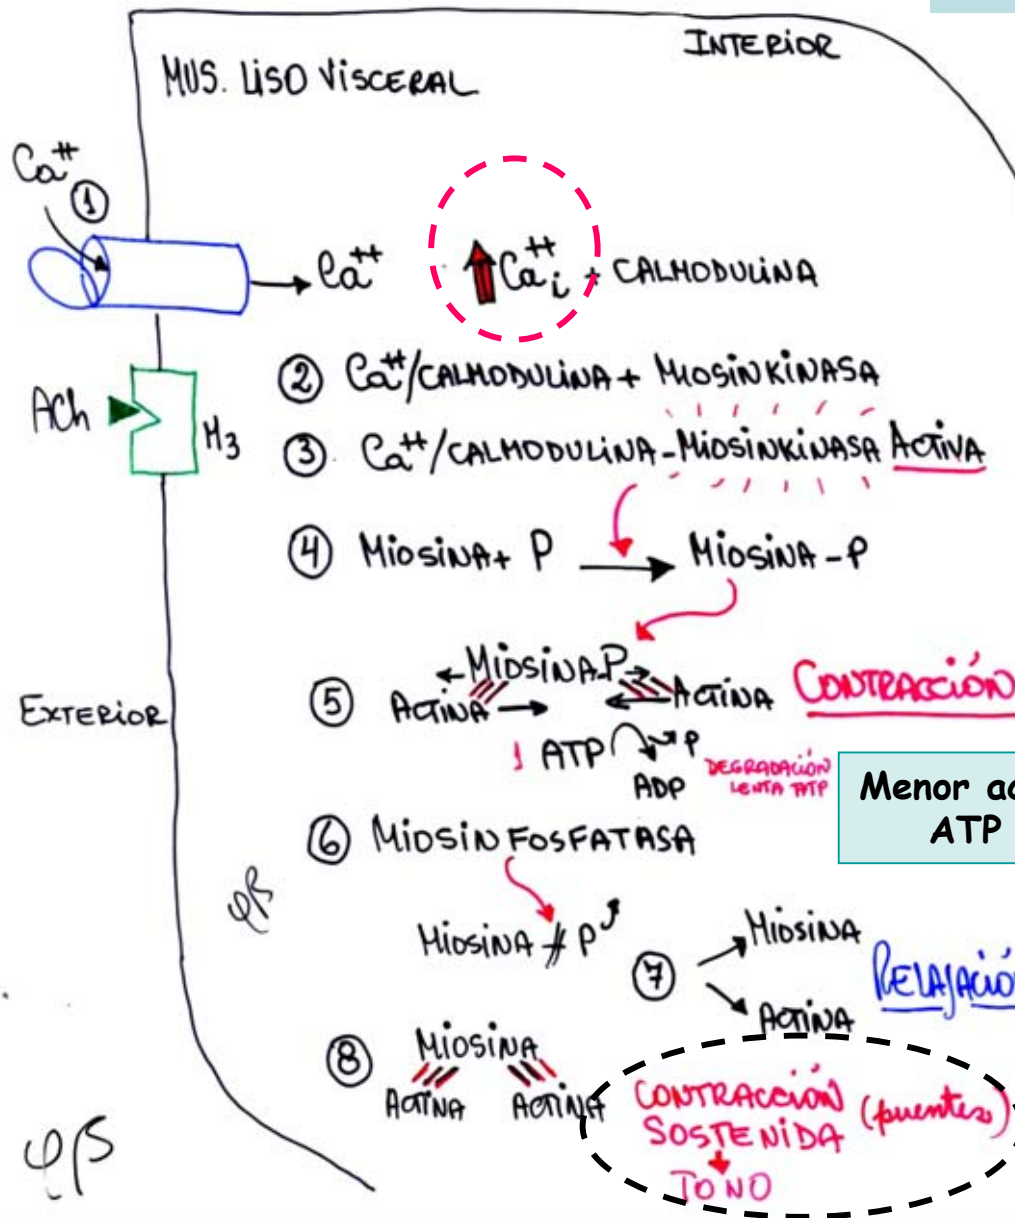 INTERIOR
MUS. LISO VISCERAL
Ca++
①
Ca++ Ca++i + CALMODULINA
ACh
M3
② Ca++/CALMODULINA + MIOSINKINASA
③ Ca++/CALMODULINA-MIOSINKINASA ACTIVA
④ MIOSINA + P MIOSINA-P
MIOSINA-P
⑤ ACTINA ACTINA CONTRACCIÓN
EXTERIOR
1 ATP P
ADP
DEGRADACIÓN
LENTA ATP
Menor ac
ATP
⑥ MIOSINFOSFATASA
MIOSINA P
⑦ MIOSINA
ACTINA
RELAJACIÓ
⑧ MIOSINA
ACTINA ACTINA
CONTRACCIÓN (puentes)
SOSTENIDA
TONO